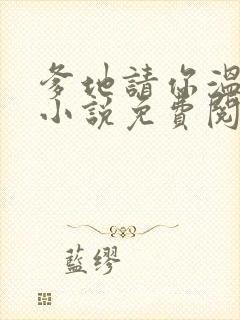 爹地請你溫
小說免費閱
藍繆